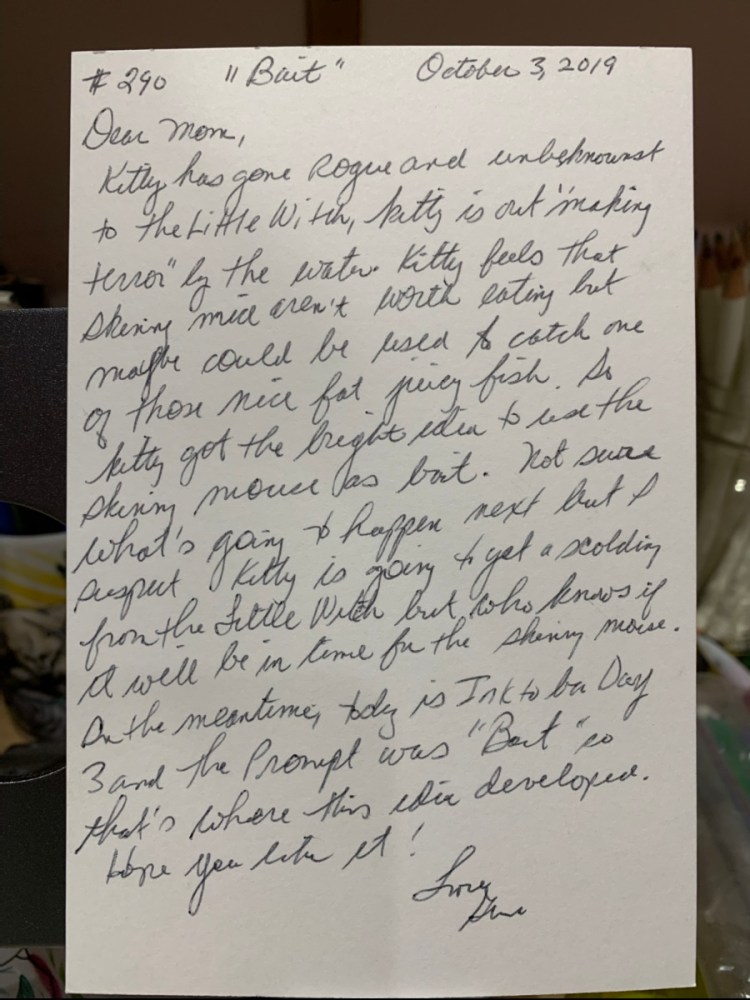 # 290 "Bait" October 3, 2019
Dear Mom,
Kitty has gone Rogue and unbeknownst
to the Little Witch, kitty is out "making
terror" by the water. Kitty feels that
skinny mice aren't worth eating but
maybe could be used to catch one
of those nice fat juicy fish. So
kitty got the bright idea to use the
skinny mouse as bait. Not sure
what's going to happen next but I
suspect Kitty is going to get a scolding
from the Little Witch but who knows if
it will be in time for the skinny mouse.
In the meantime, today is Inktober Day
3 and the Prompt was "Bait" so
that's where this idea developed.
Hope you like it!
Love